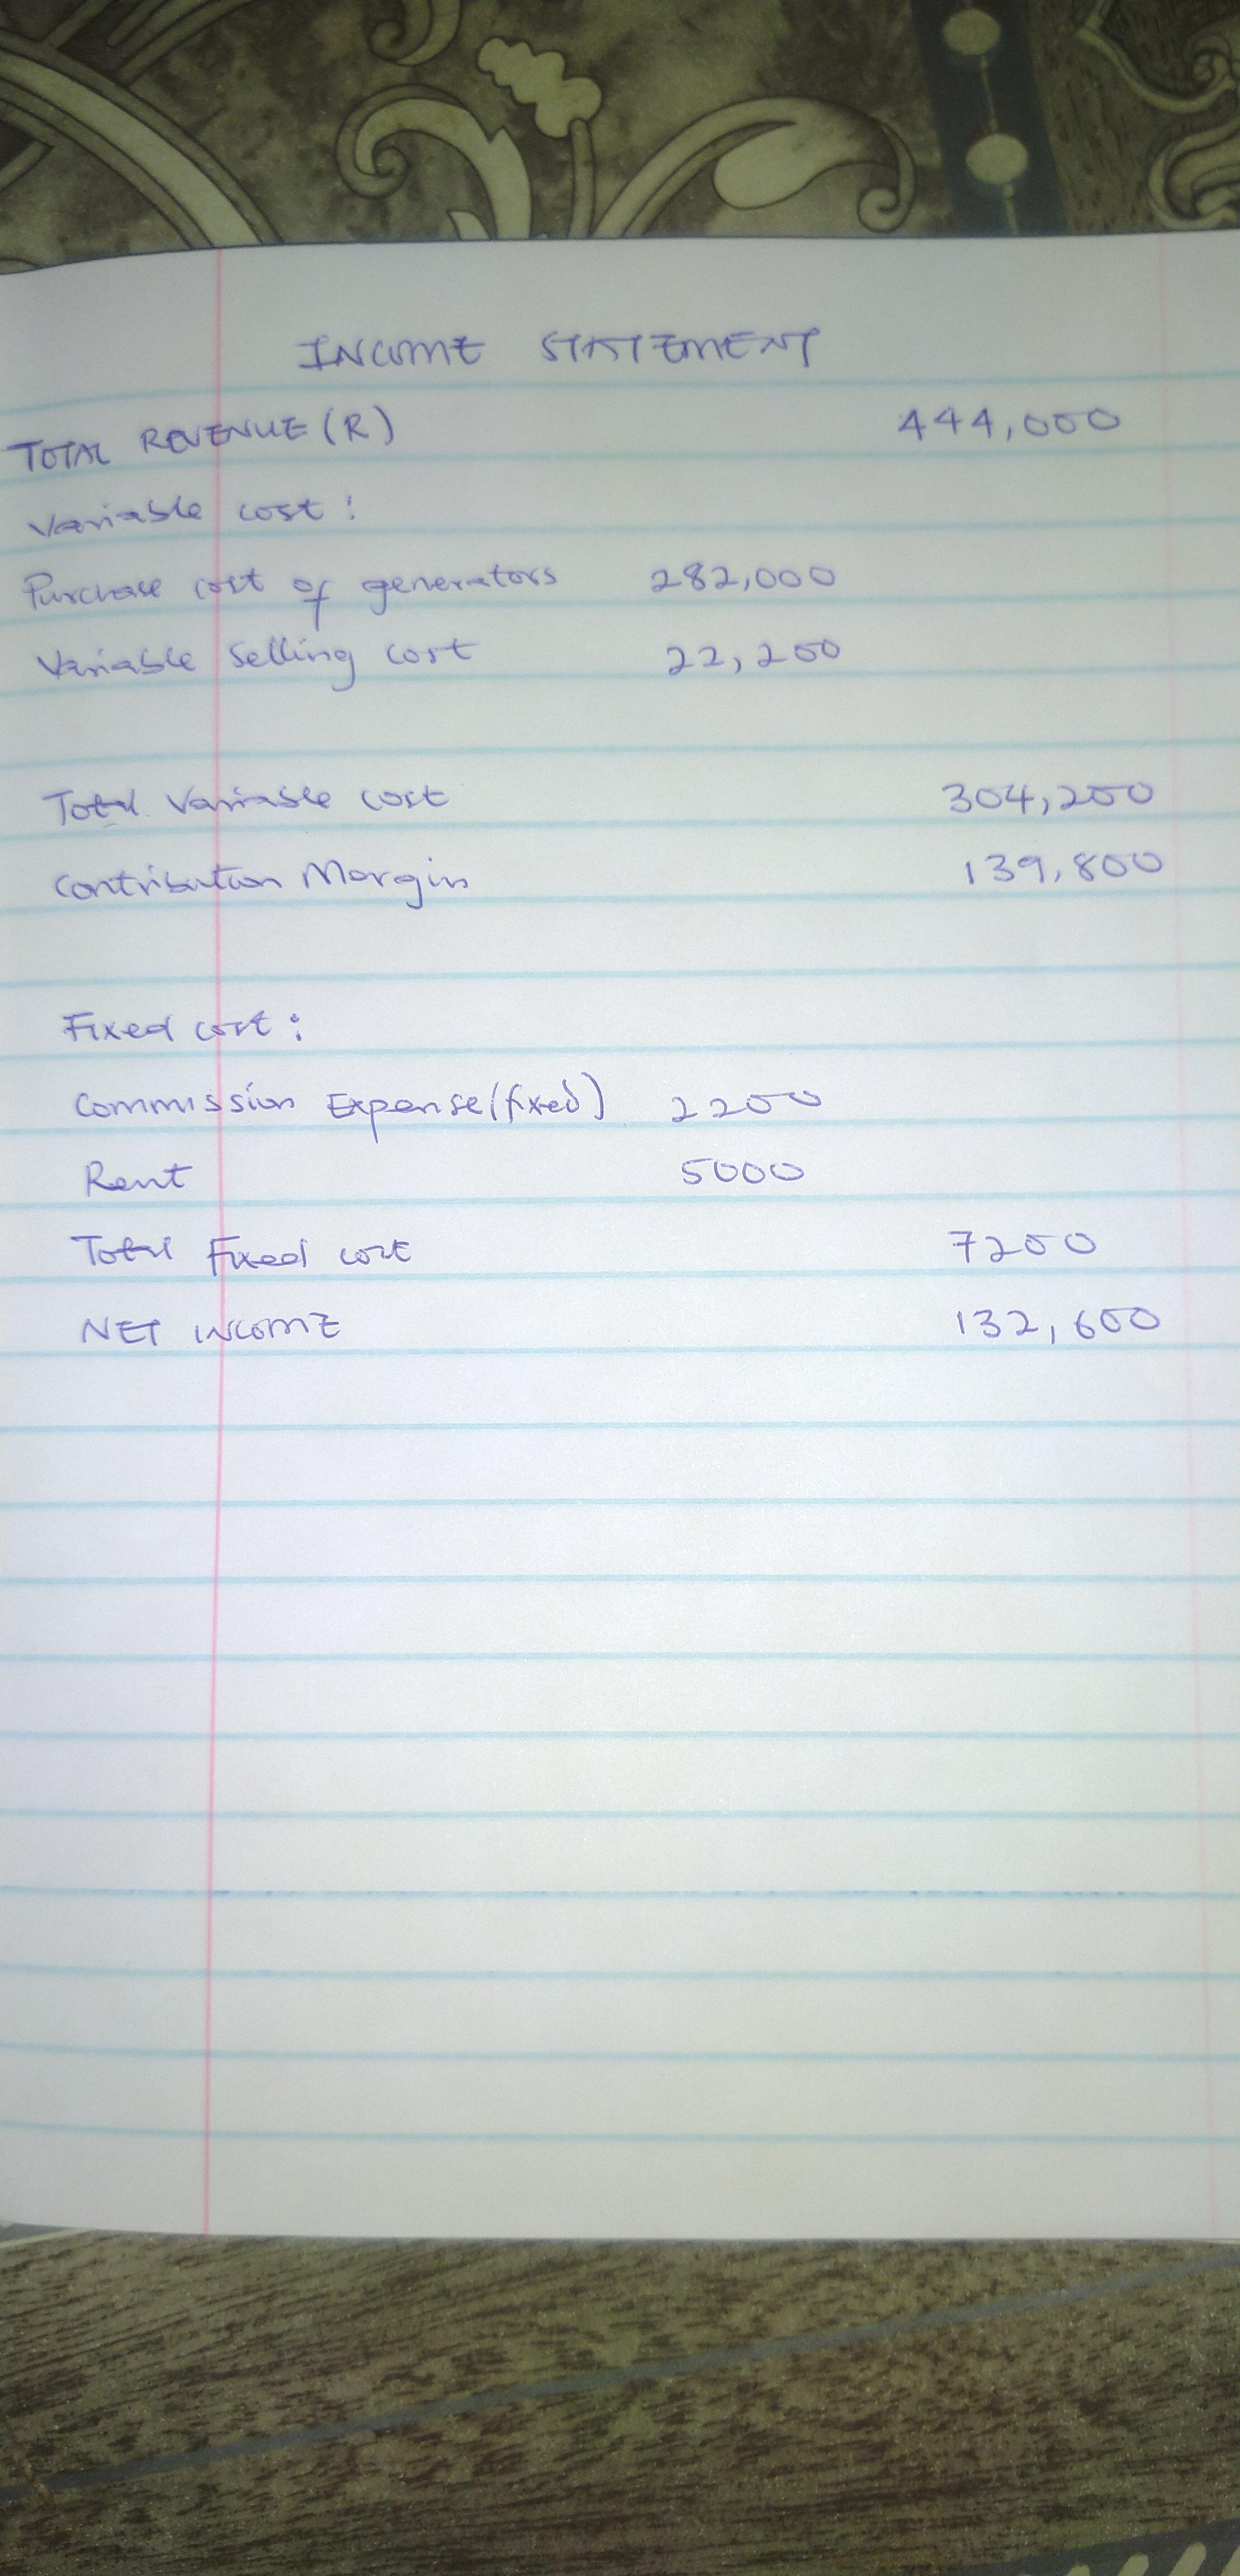 INCOME STATEMENT
TOTAL REVENUE (R) 444,000
Variable cost:
Purchase cost of generators 282,000
Variable selling cost 22,200
Total Variable cost 304,200
Contribution Margin 139,800
Fixed cost:
Commission Expense (fixed) 2200
Rent 5000
Total Fixed cost 7200
NET INCOME 132,600